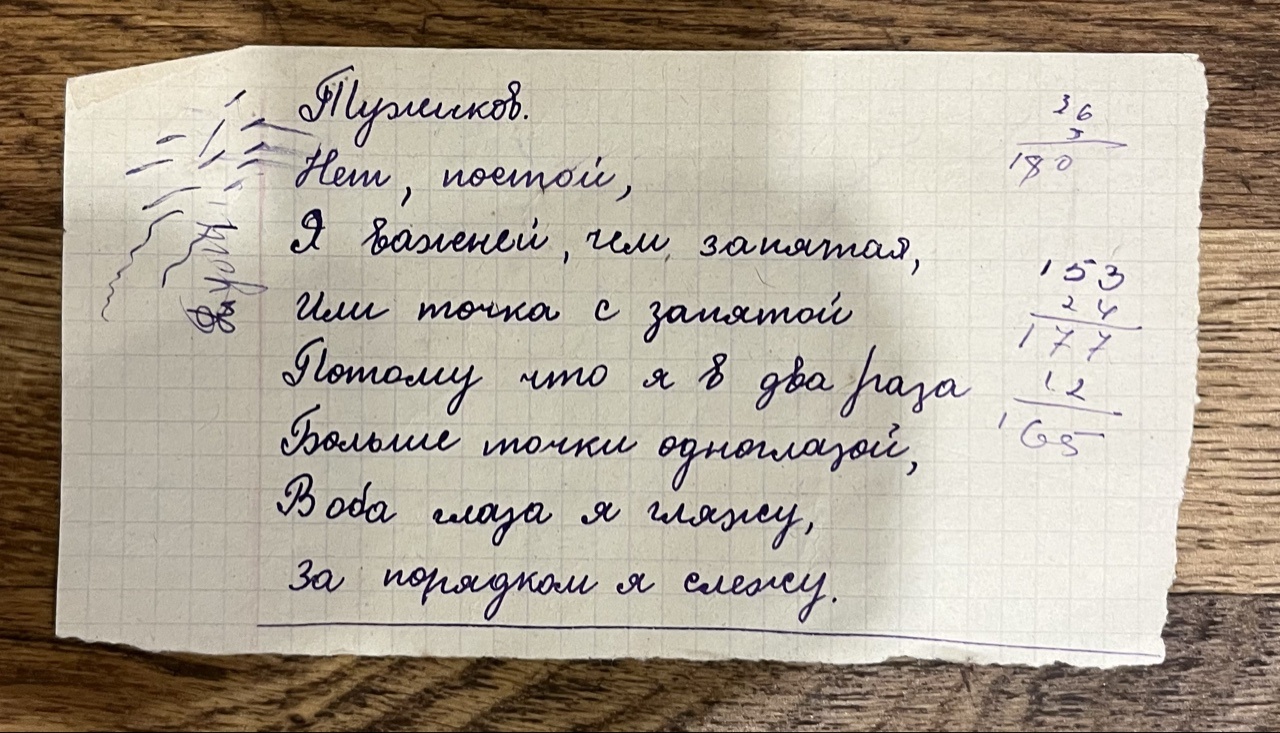 Тужиков.
Нет, постой,
Я важней, чем запятая,
Или точка с запятой
Потому что я в два раза
Больше точки одноглазой,
В оба глаза я гляжу,
За порядком я слежу.
36
5
180
153
24
177
12
165